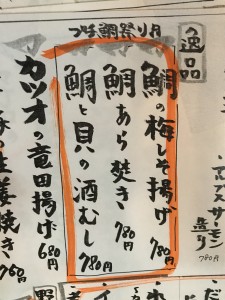 逸品
アルプスサーモン
造り
780円
つぼ鯛祭り
鯛の梅しそ揚げ
780円
鯛あら焚き
780円
鯛と貝の酒むし
780円
カツオの竜田揚げ
680円
生姜焼き
760円
野